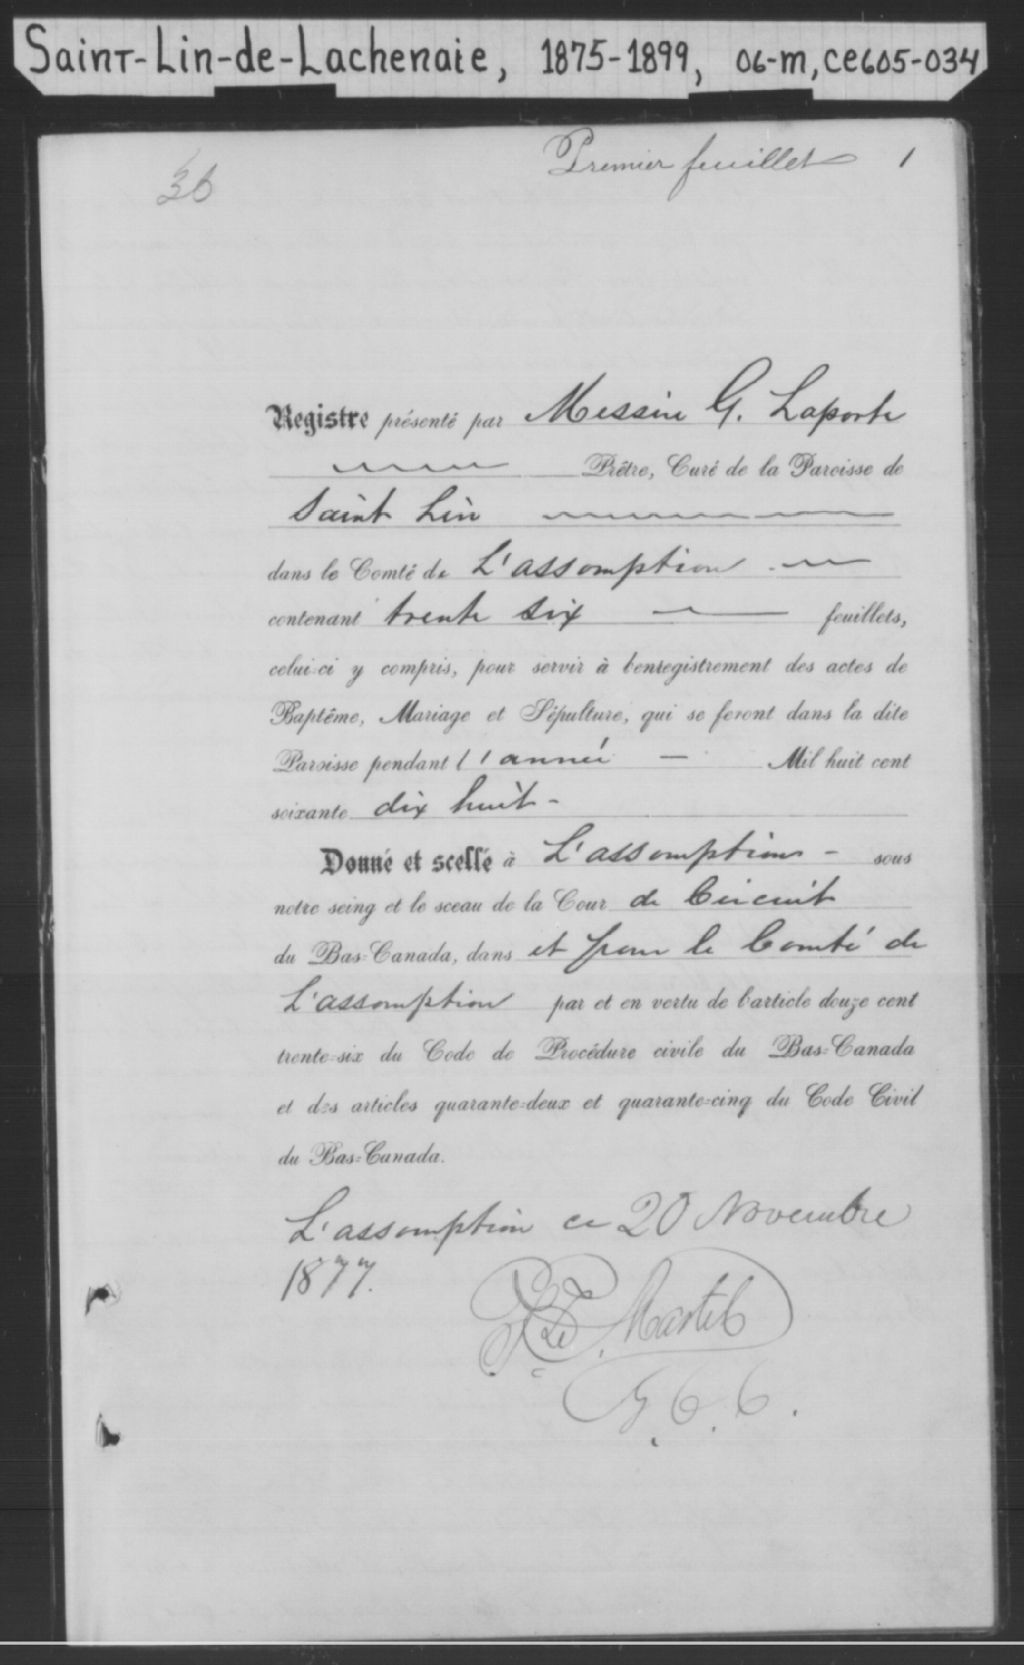 Saint-Lin-de-Lachenaie, 1875-1899, 06-m, ce605-034
Premier feuillet 1
36
Registre présenté par Messire G. Laporte
Prêtre, Curé de la Paroisse de
Saint Lin
dans le Comté de L'assomption
contenant trente six feuillets,
celui-ci y compris, pour servir à l'enregistrement des actes de
Baptême, Mariage et Sépulture, qui se feront dans la dite
Paroisse pendant l'année — Mil huit cent
soixante dix huit -
Donné et scellé à L'assomption - sous
notre seing et le sceau de la Cour de Circuit
du Bas-Canada, dans et pour le Comté de
L'assomption par et en vertu de l'article douze cent
trente-six du Code de Procédure civile du Bas-Canada
et des articles quarante-deux et quarante-cinq du Code Civil
du Bas-Canada.
L'assomption ce 20 Novembre
1877.
Martel
G. C. C.